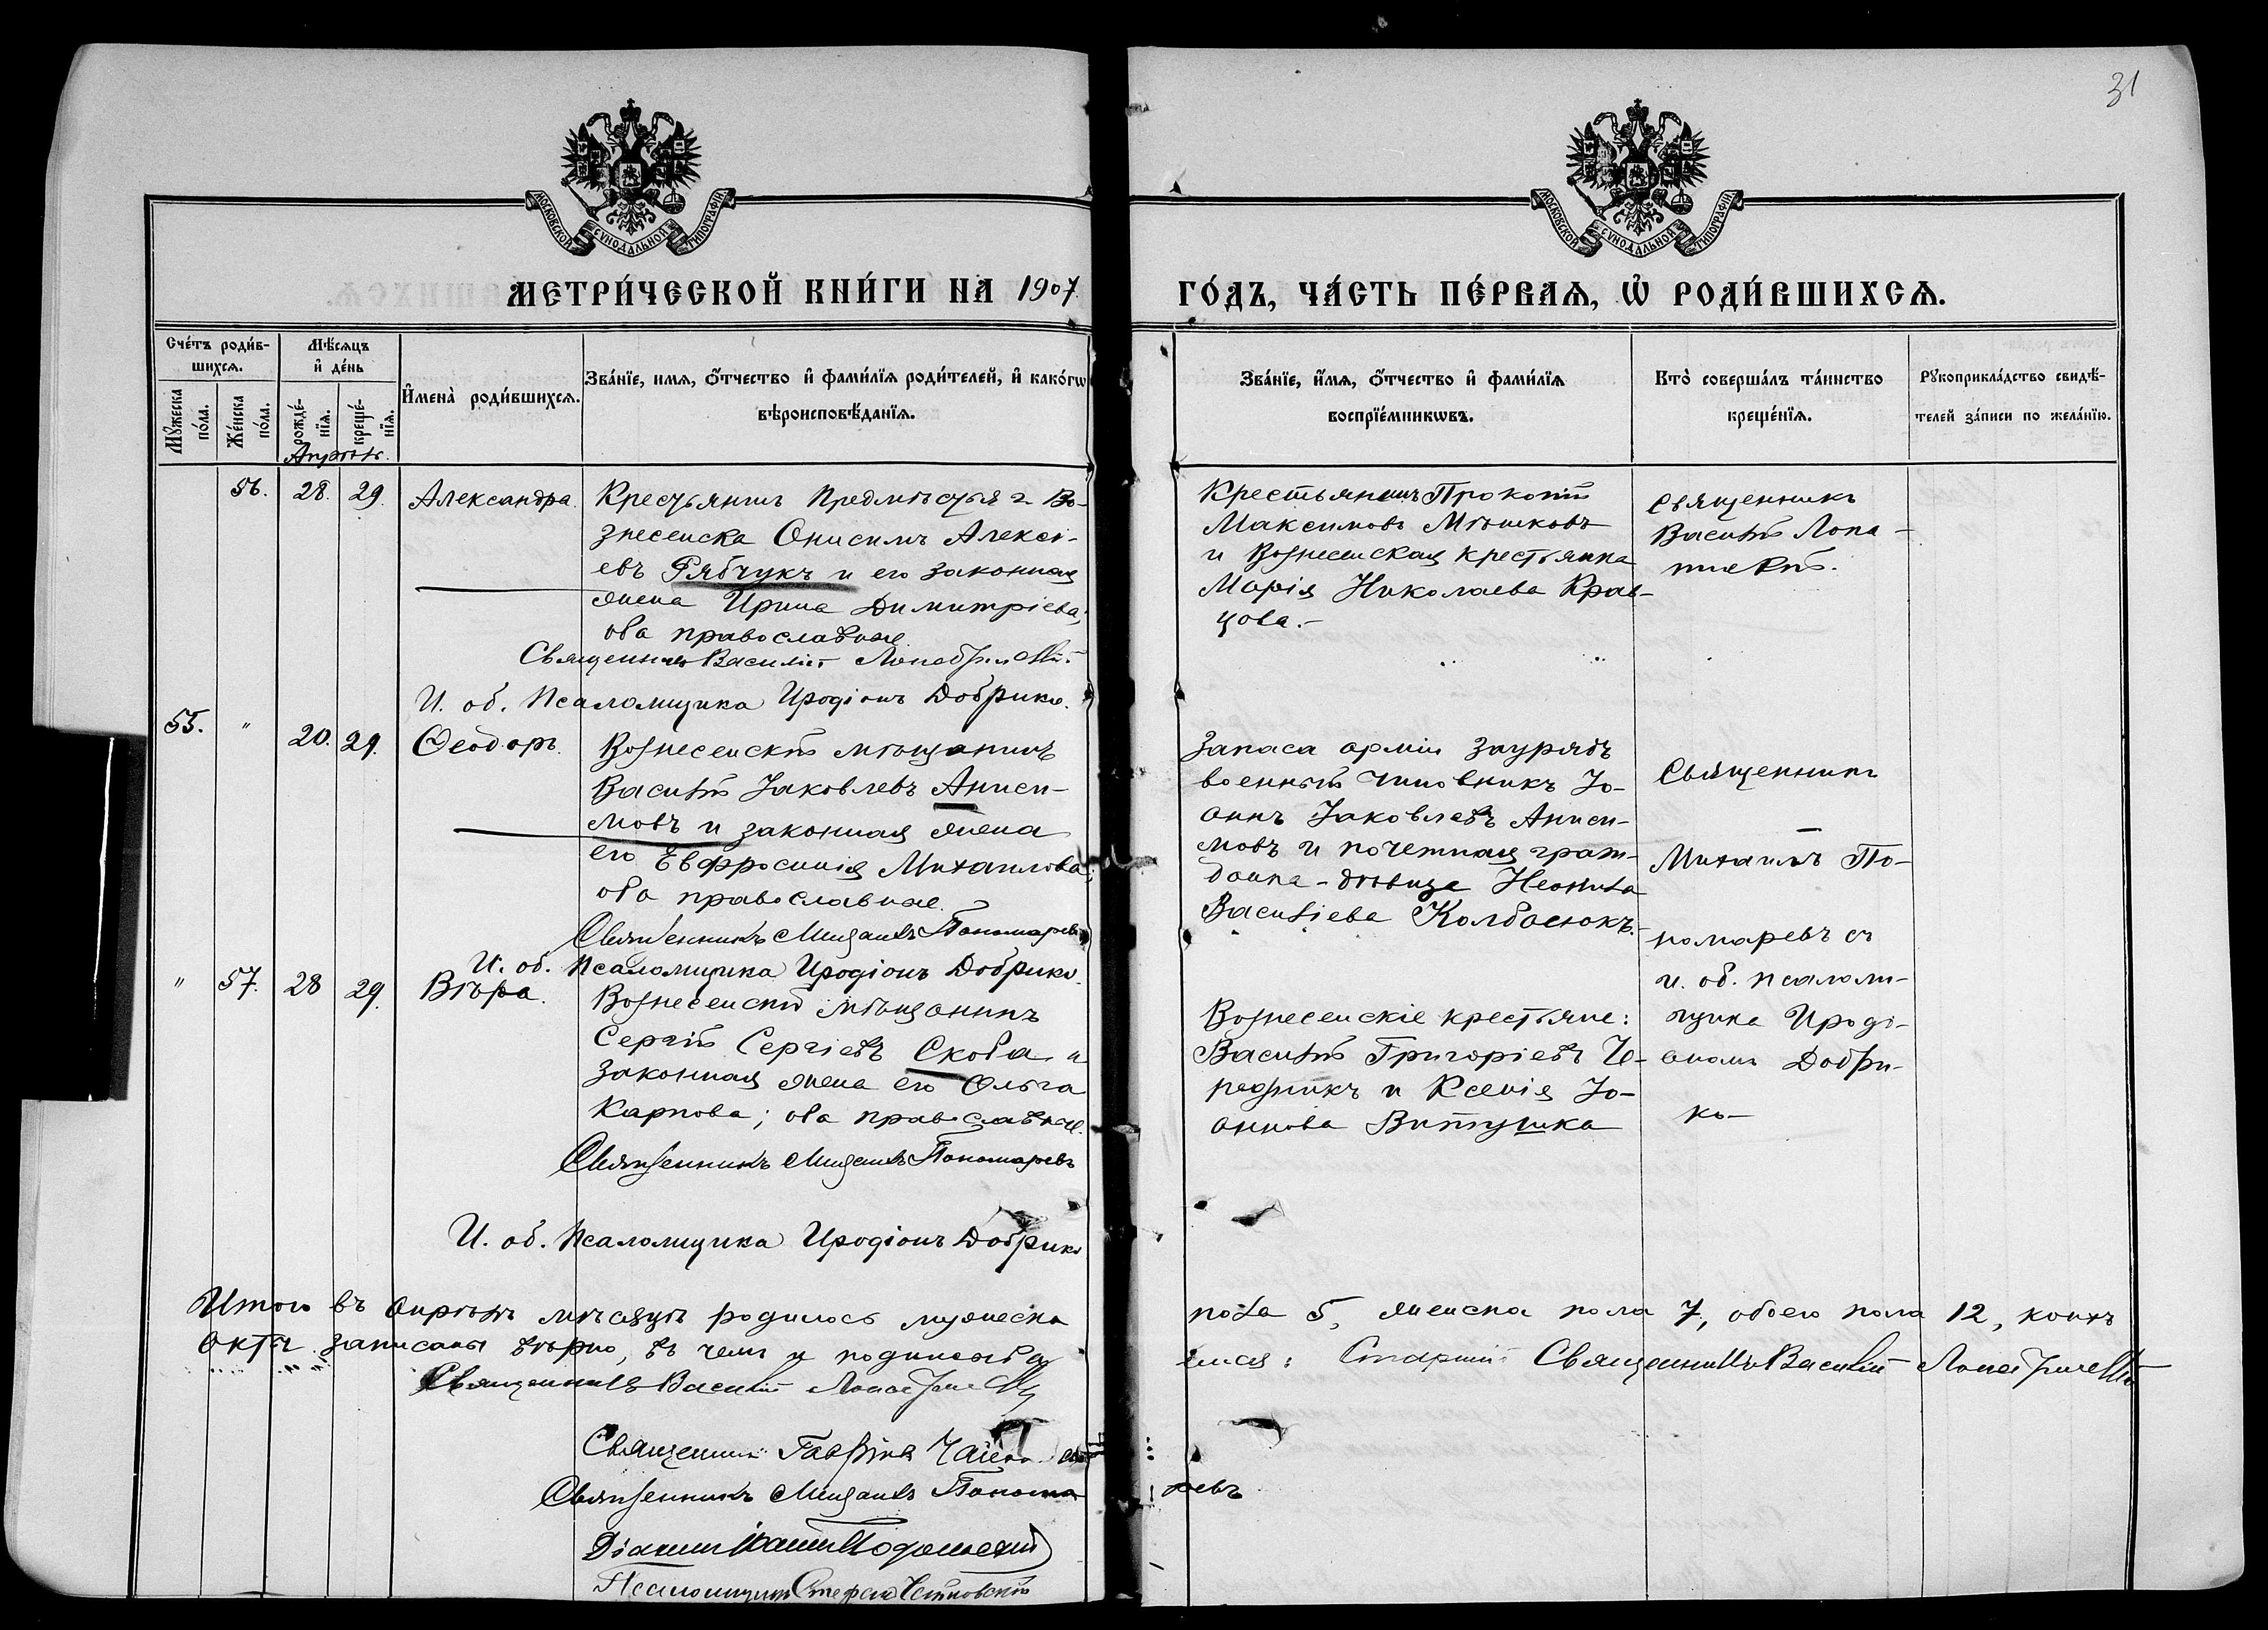 31
МОСКОВСКОЙ СУНОДАЛЬНОЙ ТИПОГРАФІИ.
МОСКОВСКОЙ СУНОДАЛЬНОЙ ТИПОГРАФІИ.
МЕТРИ́ЧЕСКОЙ КНИ́ГИ НА 1907
ГО́ДЪ, ЧА́СТЬ ПЕ́РВАѦ, Ѡ҆ РОДИ́ВШИХСѦ.
Сче́тъ роди́в-
шихсѧ.
Мꙋ́жеска
по́ла.
Же́нска
по́ла.
Мѣ́сѧцъ
и҆ де́нь
рожде́-
нїѧ.
креще́-
нїѧ.
И҆мена̀ роди́вшихсѧ.
Зва́нїе, имѧ, ѻ҆́тчество и҆ фами́лїѧ роди́телей, и҆ како́гѡ
вѣроисповѣ́данїѧ.
Зва́нїе, и҆́мѧ, ѻ҆́тчество и҆ фами́лїѧ
воспрїе́мникѡвъ.
Кто̀ соверша́лъ та́инство
креще́нїѧ.
Рꙋкоприкла́дство свидѣ́-
телей за́писи по жела́нїю.
Апрѣль.
56. 28. 29. Александра.
Крестьянинъ Предмѣстья г. Во-
знесенска Онисимъ Алексі-
евъ Рябчукъ и его законная
жена Ирина Димитріева;
оба православные
Священникъ Василій Лопатинскій.
И. об. Псаломщика Иродіонъ Добрико.
Крестьянинъ Прокопій
Максимовъ Мѣшковъ
и Вознесенская крестьянка
Марія Николаева Крав-
цова.-
Священникъ
Василій Лопа-
тинскій.
55. " 20. 29. Ѳеодоръ.
Вознесенскій мѣщанинъ
Василій Іаковлевъ Аниси-
мовъ и законная жена
его Евфросинія Михаилова;
оба православные.
Священникъ Михаилъ Пономаревъ
И. об. Псаломщика Иродіонъ Добрико.
Запаса арміи Заурядъ
военный чиновникъ Іо-
аннъ Іаковлевъ Аниси-
мовъ и почетная граж-
данка-дѣвица Неонила
Василіева Колбасюкъ.-
Священникъ
Михаилъ По-
номаревъ съ
и. об. псалом-
щика Иродi-
ономъ Добри-
ко-
" 57. 28 29. Вѣра.
Вознесенскій мѣщанинъ
Сергій Сергіевъ Скоба и
законная жена его Ольга
Карпова; оба православные.
Священникъ Михаилъ Пономаревъ
И. об. Псаломщика Иродіонъ Добрико
Вознесенскіе крестьяне:
Василій Григоріевъ Че-
редникъ и Ксенія Іо-
аннова Витушка
Итого въ Апрѣлѣ мѣсяцѣ родилось мужеска
пола 5, женска пола 7, обоего пола 12, коихъ
акты записаны вѣрно, въ чемъ и подписа
мися: Старшій Священникъ Василій Лопатинскій
Священникъ Василій Лопатинскій
Священникъ Гавріилъ
Священникъ Михаилъ Понома
ревъ
Діаконъ Подольскій
Псаломщикъ Стефанъ